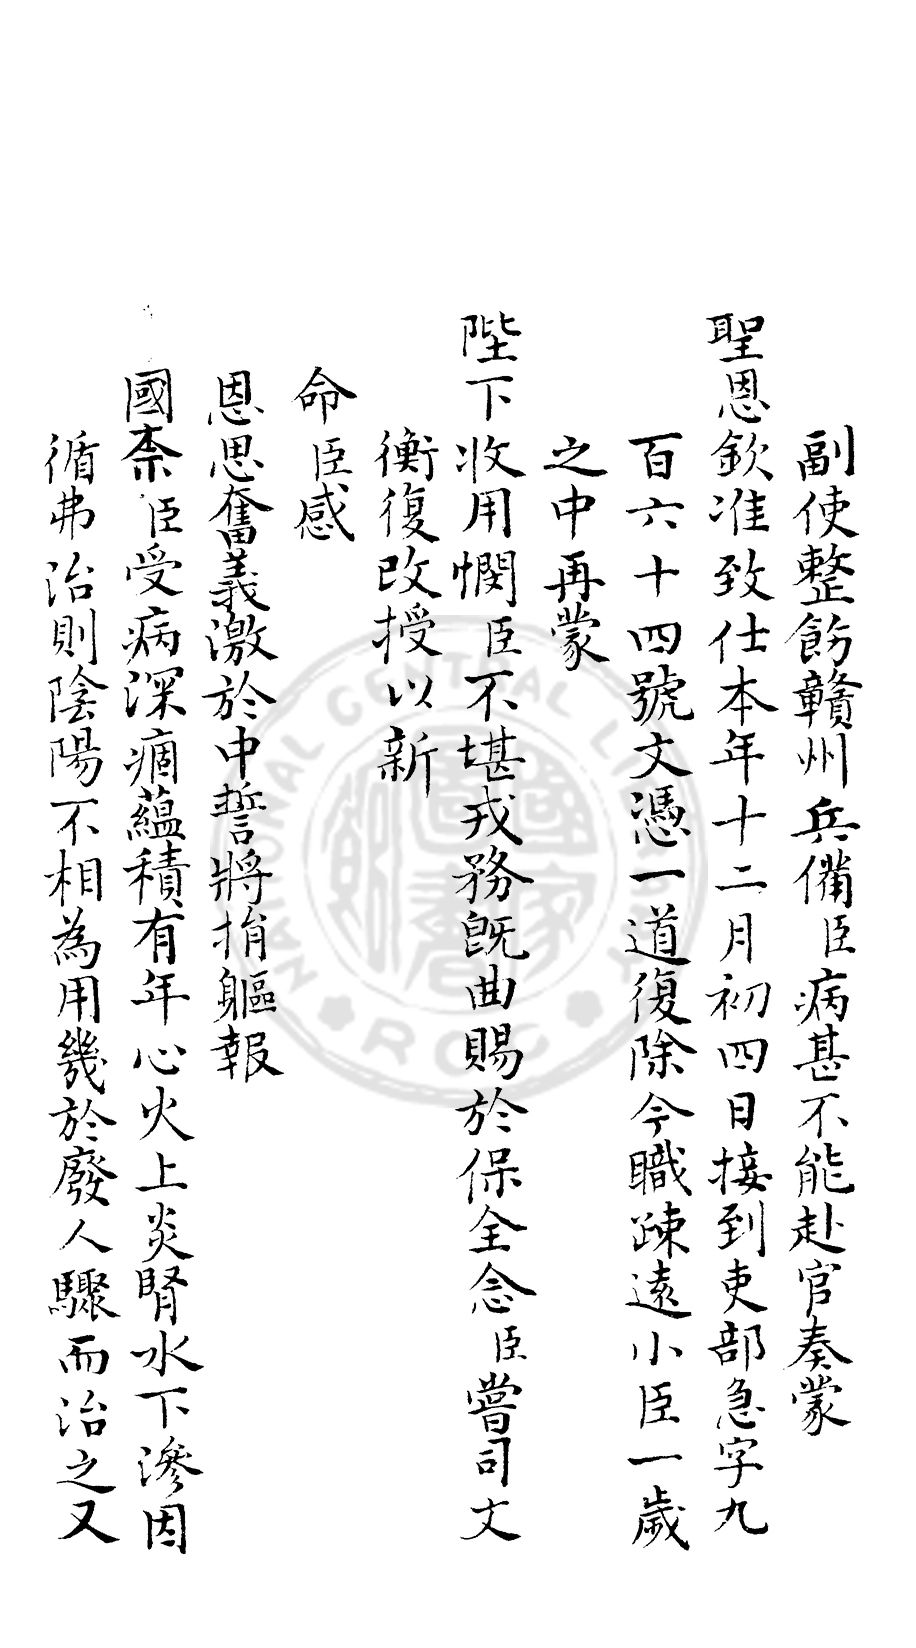 副使整飭贛州兵備臣病甚不能赴官奏蒙
聖恩欽准致仕本年十二月初四日接到吏部急字九
百六十四號文憑一道復除今職踈遠小臣一歲
之中再蒙
陛下收用憫臣不堪戎務既曲賜於保全念臣嘗司文
衡復改授以新
命臣感
恩思奮義激於中誓將捐軀報
國柰臣受病深痼蘊積有年心火上炎腎水下滲因
循弗治則陰陽不相為用幾於廢人驟而治之又
NATIONAL CENTRAL LIBRARY
ROC